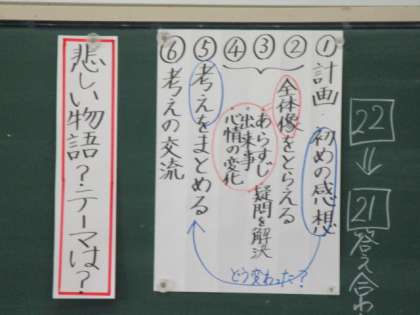 22
⇓
21
答え合わ
①計画・初めの感想
②全体像をとらえる
③あらすじ 疑問を解決
④出来事
心情の変化
⑤考えをまとめる
⑥考えの交流
どう変わった?
悲しい物語?テーマは?